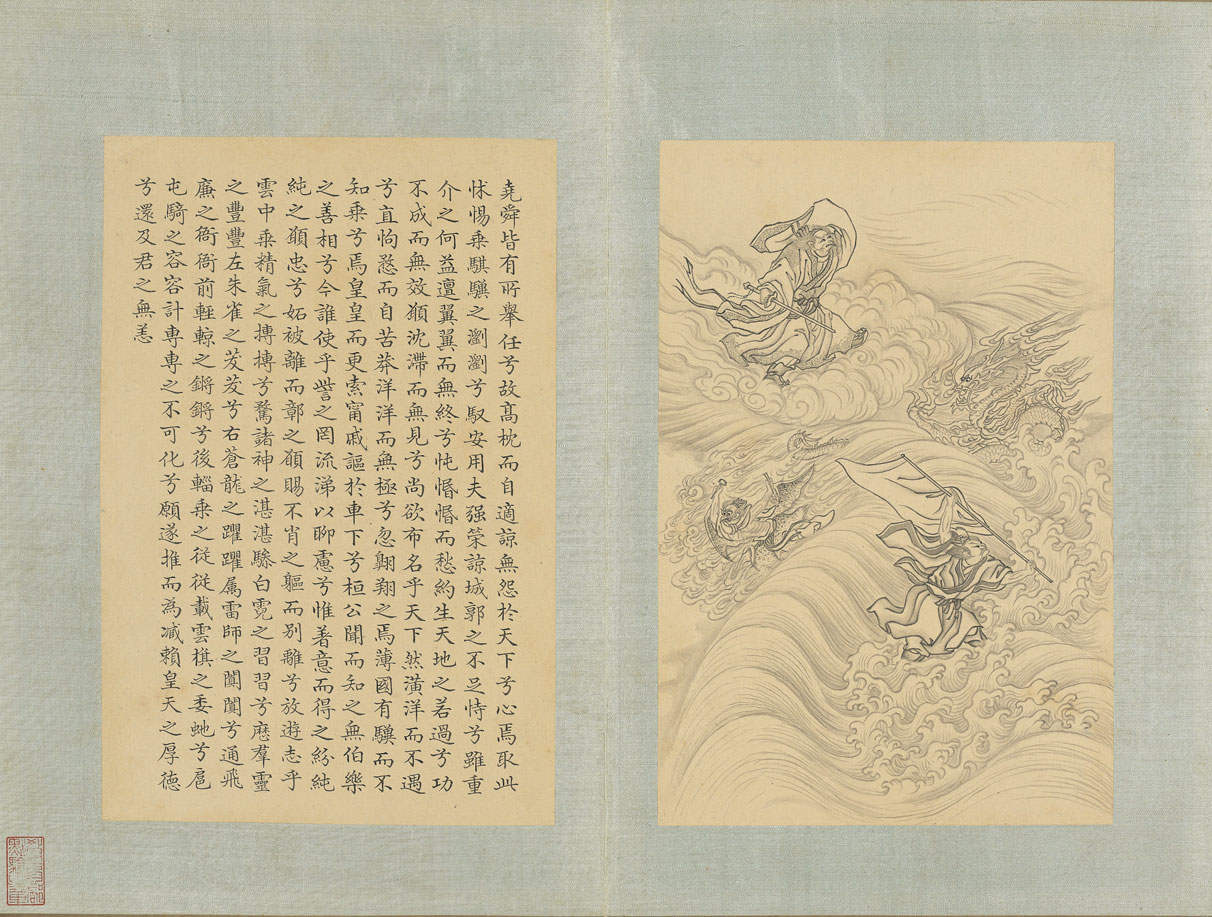 堯舜皆有所舉任兮故髙枕而自適諒無怨於天下兮心焉取此
怵惕乗騏驥之瀏瀏兮馭安用夫强榮諒城郭之不足恃兮雖重
介之何益邅翼翼而無終兮忳惛惛而愁約生天地之若過兮功
不成而無效願沈滯而無見兮尚欲布名乎天下然潢洋而不遇
兮直怐愗而自苦莽洋洋而無極兮忽翺翔之焉薄國有驥而不
知乗兮焉皇皇而更索甯戚謳於車下兮桓公聞而知之無伯樂
之善相兮今誰使乎訾之罔流涕以聊慮兮惟著意而得之紛純
純之願忠兮妬被離而鄣之願賜不肖之軀而别離兮放遊志乎
雲中乗精氣之摶摶兮騖諸神之湛湛驂白霓之習習兮歷羣靈
之豐豐左朱雀之茇茇兮右蒼龍之躍躍属雷師之闐闐兮通飛
廉之衙衙前輊輬之鏘鏘兮後輜乗之從從載雲旗之委虵兮扈
屯騎之容容計專專之不可化兮願遂推而為减賴皇天之厚德
兮還及君之無恙